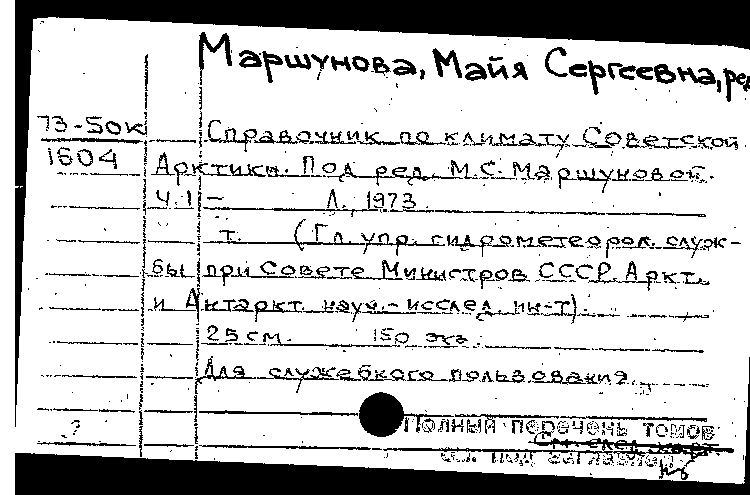 Маршунова, Майя Сергеевна, ред
73-50к Справочник по климату Советской
1604 Арктики. Под ред. М.С. Маршуновой.
Ч. 1 - Л., 1973
т. (Гл. упр. гидрометеорол. служ-
бы при Совете Министров СССР. Аркт.
и Антаркт. науч.-исслед. ин-т).
25 см. 150 экз.
Для служебного пользования.
Полный перечень томов
См. след. карт.
см. под заглавием